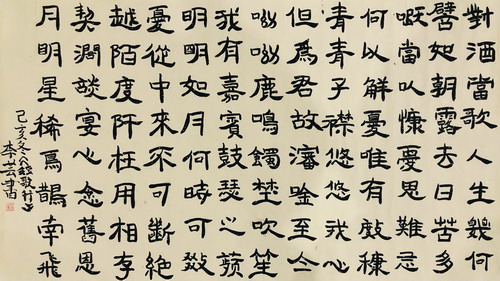 對酒當歌人生幾何
譬如朝露去日苦多
嘅當以慷憂思難忘
何以解憂唯有穅
青青子襟悠悠我心
但為君故瀋唫至今
呦呦鹿鳴埜吹笙
我有嘉賓鼓瑟之蘋
明明如月何時可敠
憂從中來不可斷絕
越陌度阡枉用相存
契濶談宴心念舊恩
月明星稀烏鵲南飛
己亥冬歌行
李芸書